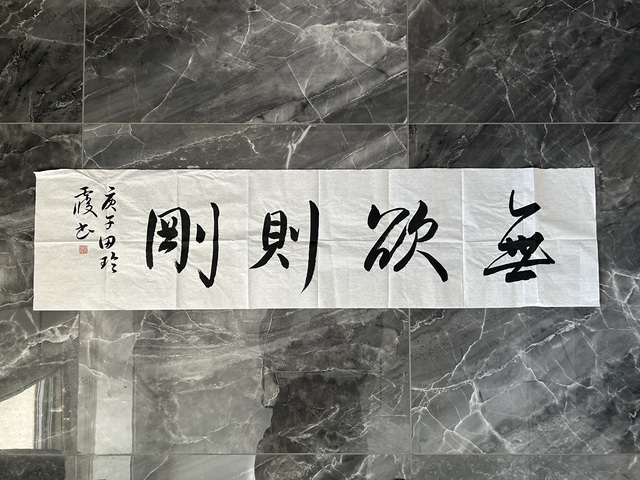 無欲則剛
庚子田玲
霞书